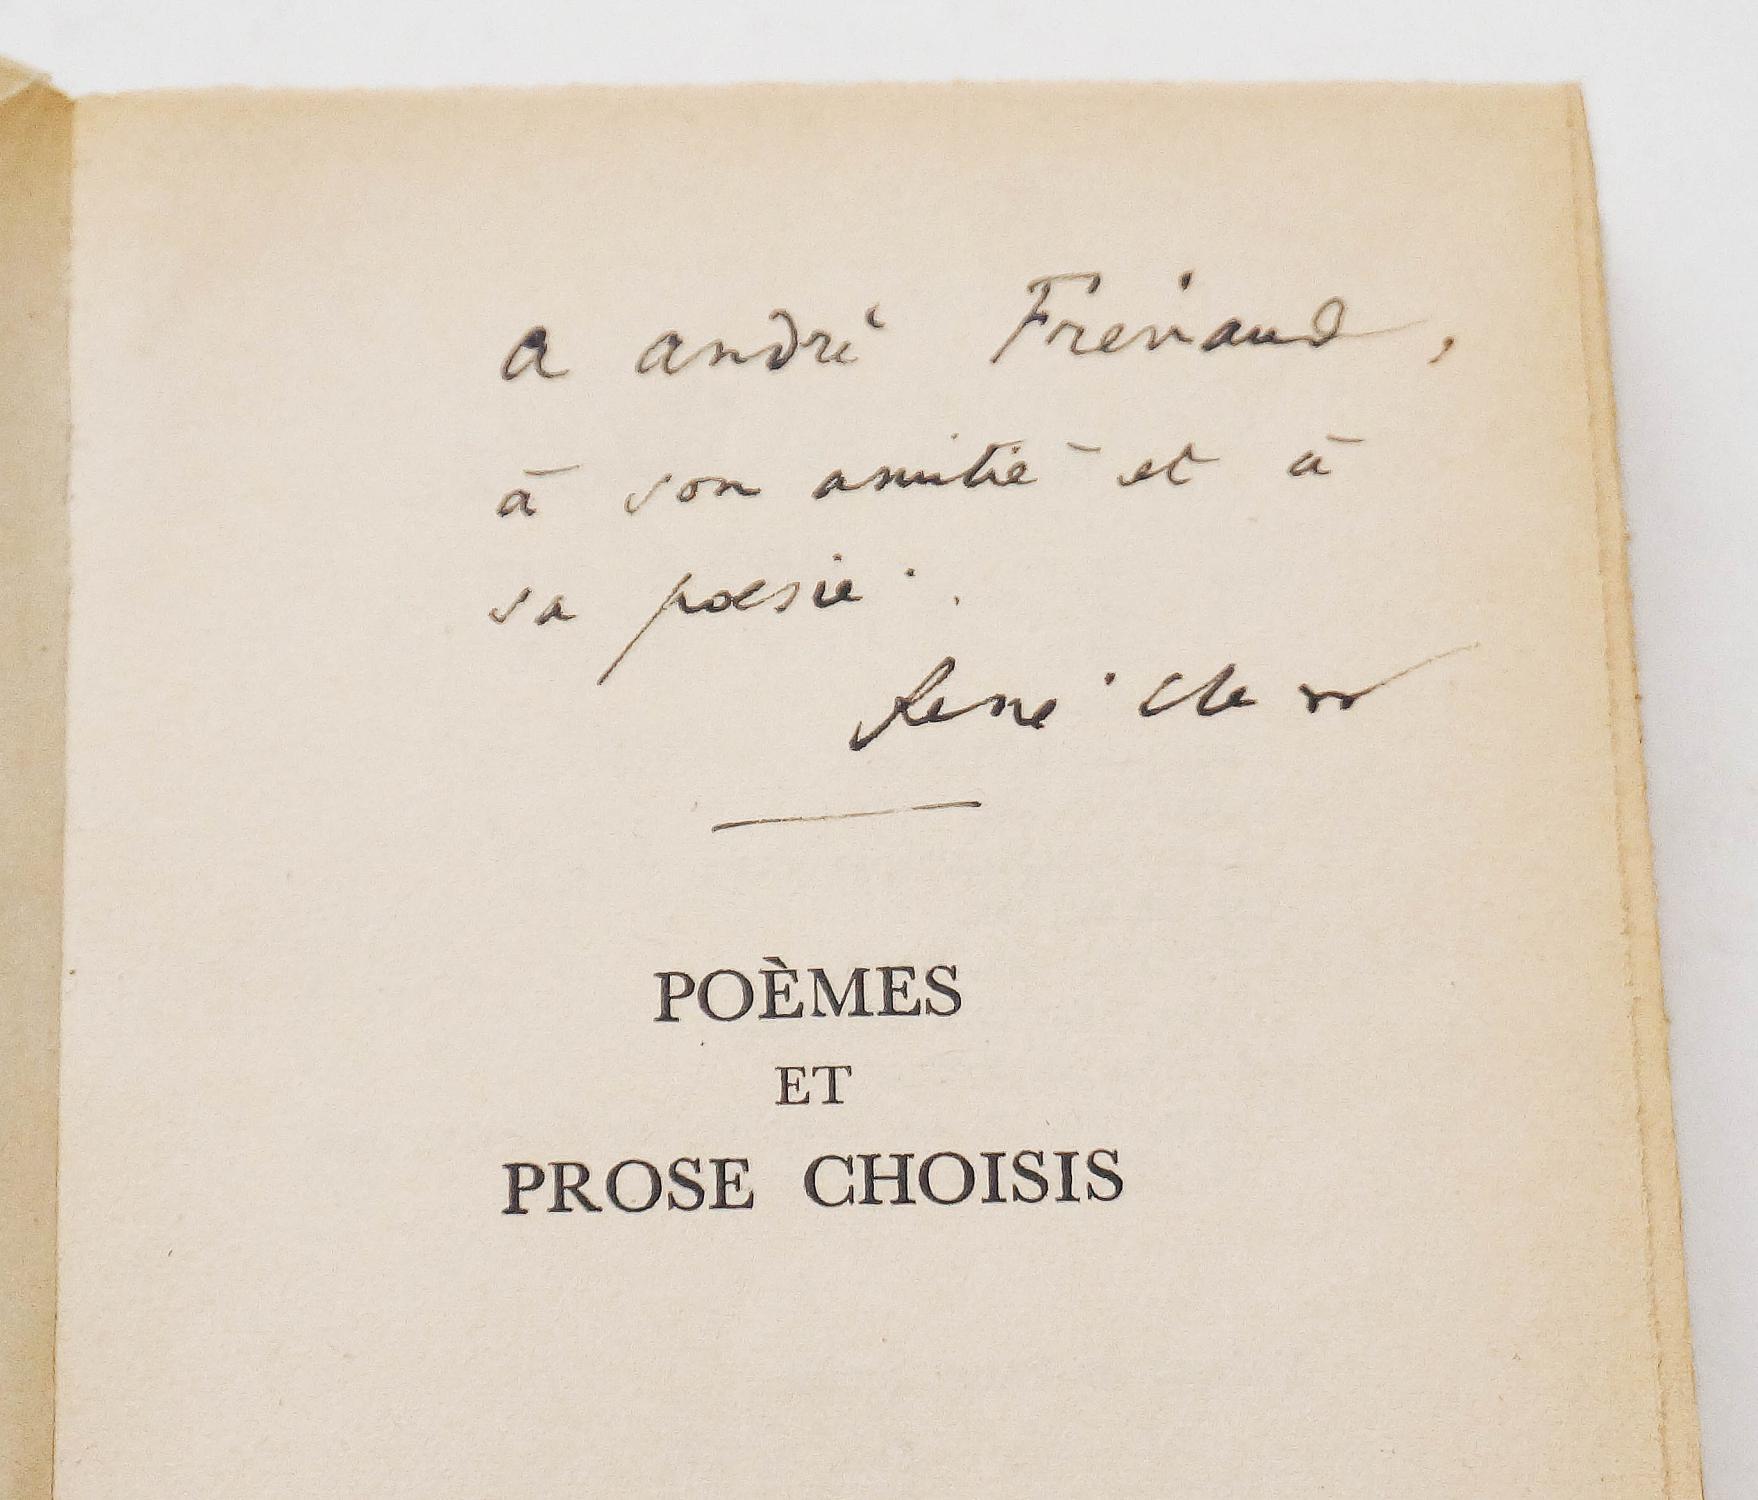 a andré Frénaud,
à son amitié et à
sa poésie.
René Char
POÈMES
ET
PROSE CHOISIS